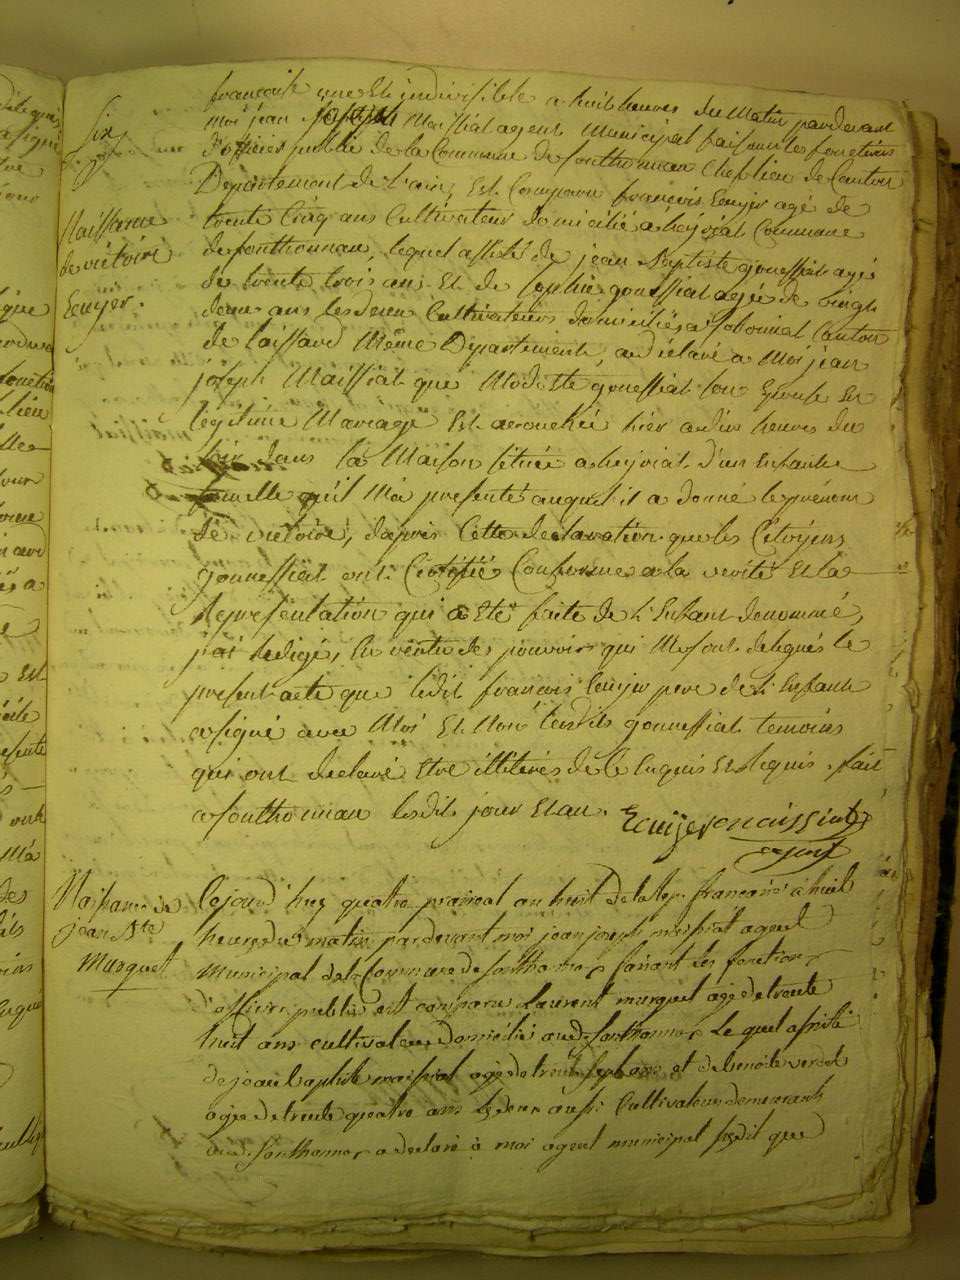 six
francaise une Et indivisible a huit heures du Matin pardevant
moi jean joseph Maissiat agent Municipal faisant les fonctions
d'officier public de la Commune de sonthonnax Cheflieu de Canton
Departement de l'ain, Est Comparu françois Ecuyer agé de
Naissance
trente Cinq ans Cultivateur domicilié a heyriat Commune
de victoire
de sonthonnax, lequel assisté de jean Baptiste gouessiat agé
Ecuyer.
de trente trois ans Et de sophie gouessiat agée de vingt
deux ans les deux Cultivateurs domiciliés a Canton
de Même Departement, a déclaré a Moi jean
joseph Maissiat que Modeste gouessiat son Epouse En
legitime Mariage Est accouchée hier a dix heures du
soir dans sa Maison située a heyriat d'un Enfant
femelle qu'il M'a presenté auquel il a donné le prénom
de victoire, d'apres Cette declaration que les Citoyens
gouessiat ont Certifiée Conforme a la verité Et la
Representation qui a Eté faite de l'Enfant denommé,
j'ai Redigé, En vertu des pouvoirs qui Me sont delegués le
present acte que ledit francois Ecuyer pere de l'Enfant
a signé avec Moi Et Non lesdits gouessiat temoins
qui ont declaré Etre illiterés de Ce Enquis Et Requis. fait
a sonthonnax lesdit jour Et an. Ecuyer maissiat
agent
Naissance de
Cejourd'huy quatre prairial an huit de la Rep. francaise a huit
jean Bte
heures du matin pardevant moi jean joseph maissiat agent
Marquet
Municipal de la Commune de Sonthonnax faisant les fonctions
d'officier public est comparu Laurent marquet agé de trente
huit ans cultivateur domicilié aud. Sonthonnax Le quel assisté
de jean baptiste maissiat agé de trente sept ans et de benoite
agée de trente quatre ans Les deux aussi Cultivateurs demeurants
aud. Sonthonnax a declaré à moi agent municipal susdit que